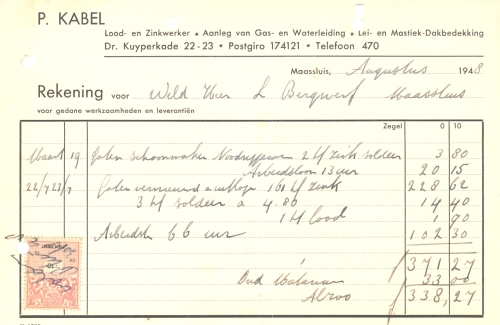 P. KABEL
Lood- en Zinkwerker • Aanleg van Gas- en Waterleiding • Lei- en Mastiek-Dakbedekking
Dr. Kuyperkade 22-23 • Postgiro 174121 • Telefoon 470
Maassluis, Augustus 1948
Rekening voor Weld Heer L Bergwerf Maassluis
voor gedane werkzaamheden en leverantiën
Zegel 0 10
Maart 19 Goten schoonmaken 2 tf zink soldeer 3 80
Arbeidsloon 13 uur 20 15
22/7 27/7 Goten vernieuwd 161 tf zink 228 62
3 tf soldeer a 4.80 14 40
1 tf lood 1 70
Arbeidsl 66 uur 102 30
f 371 27
Oud Materiaal 33 00
f 338,27